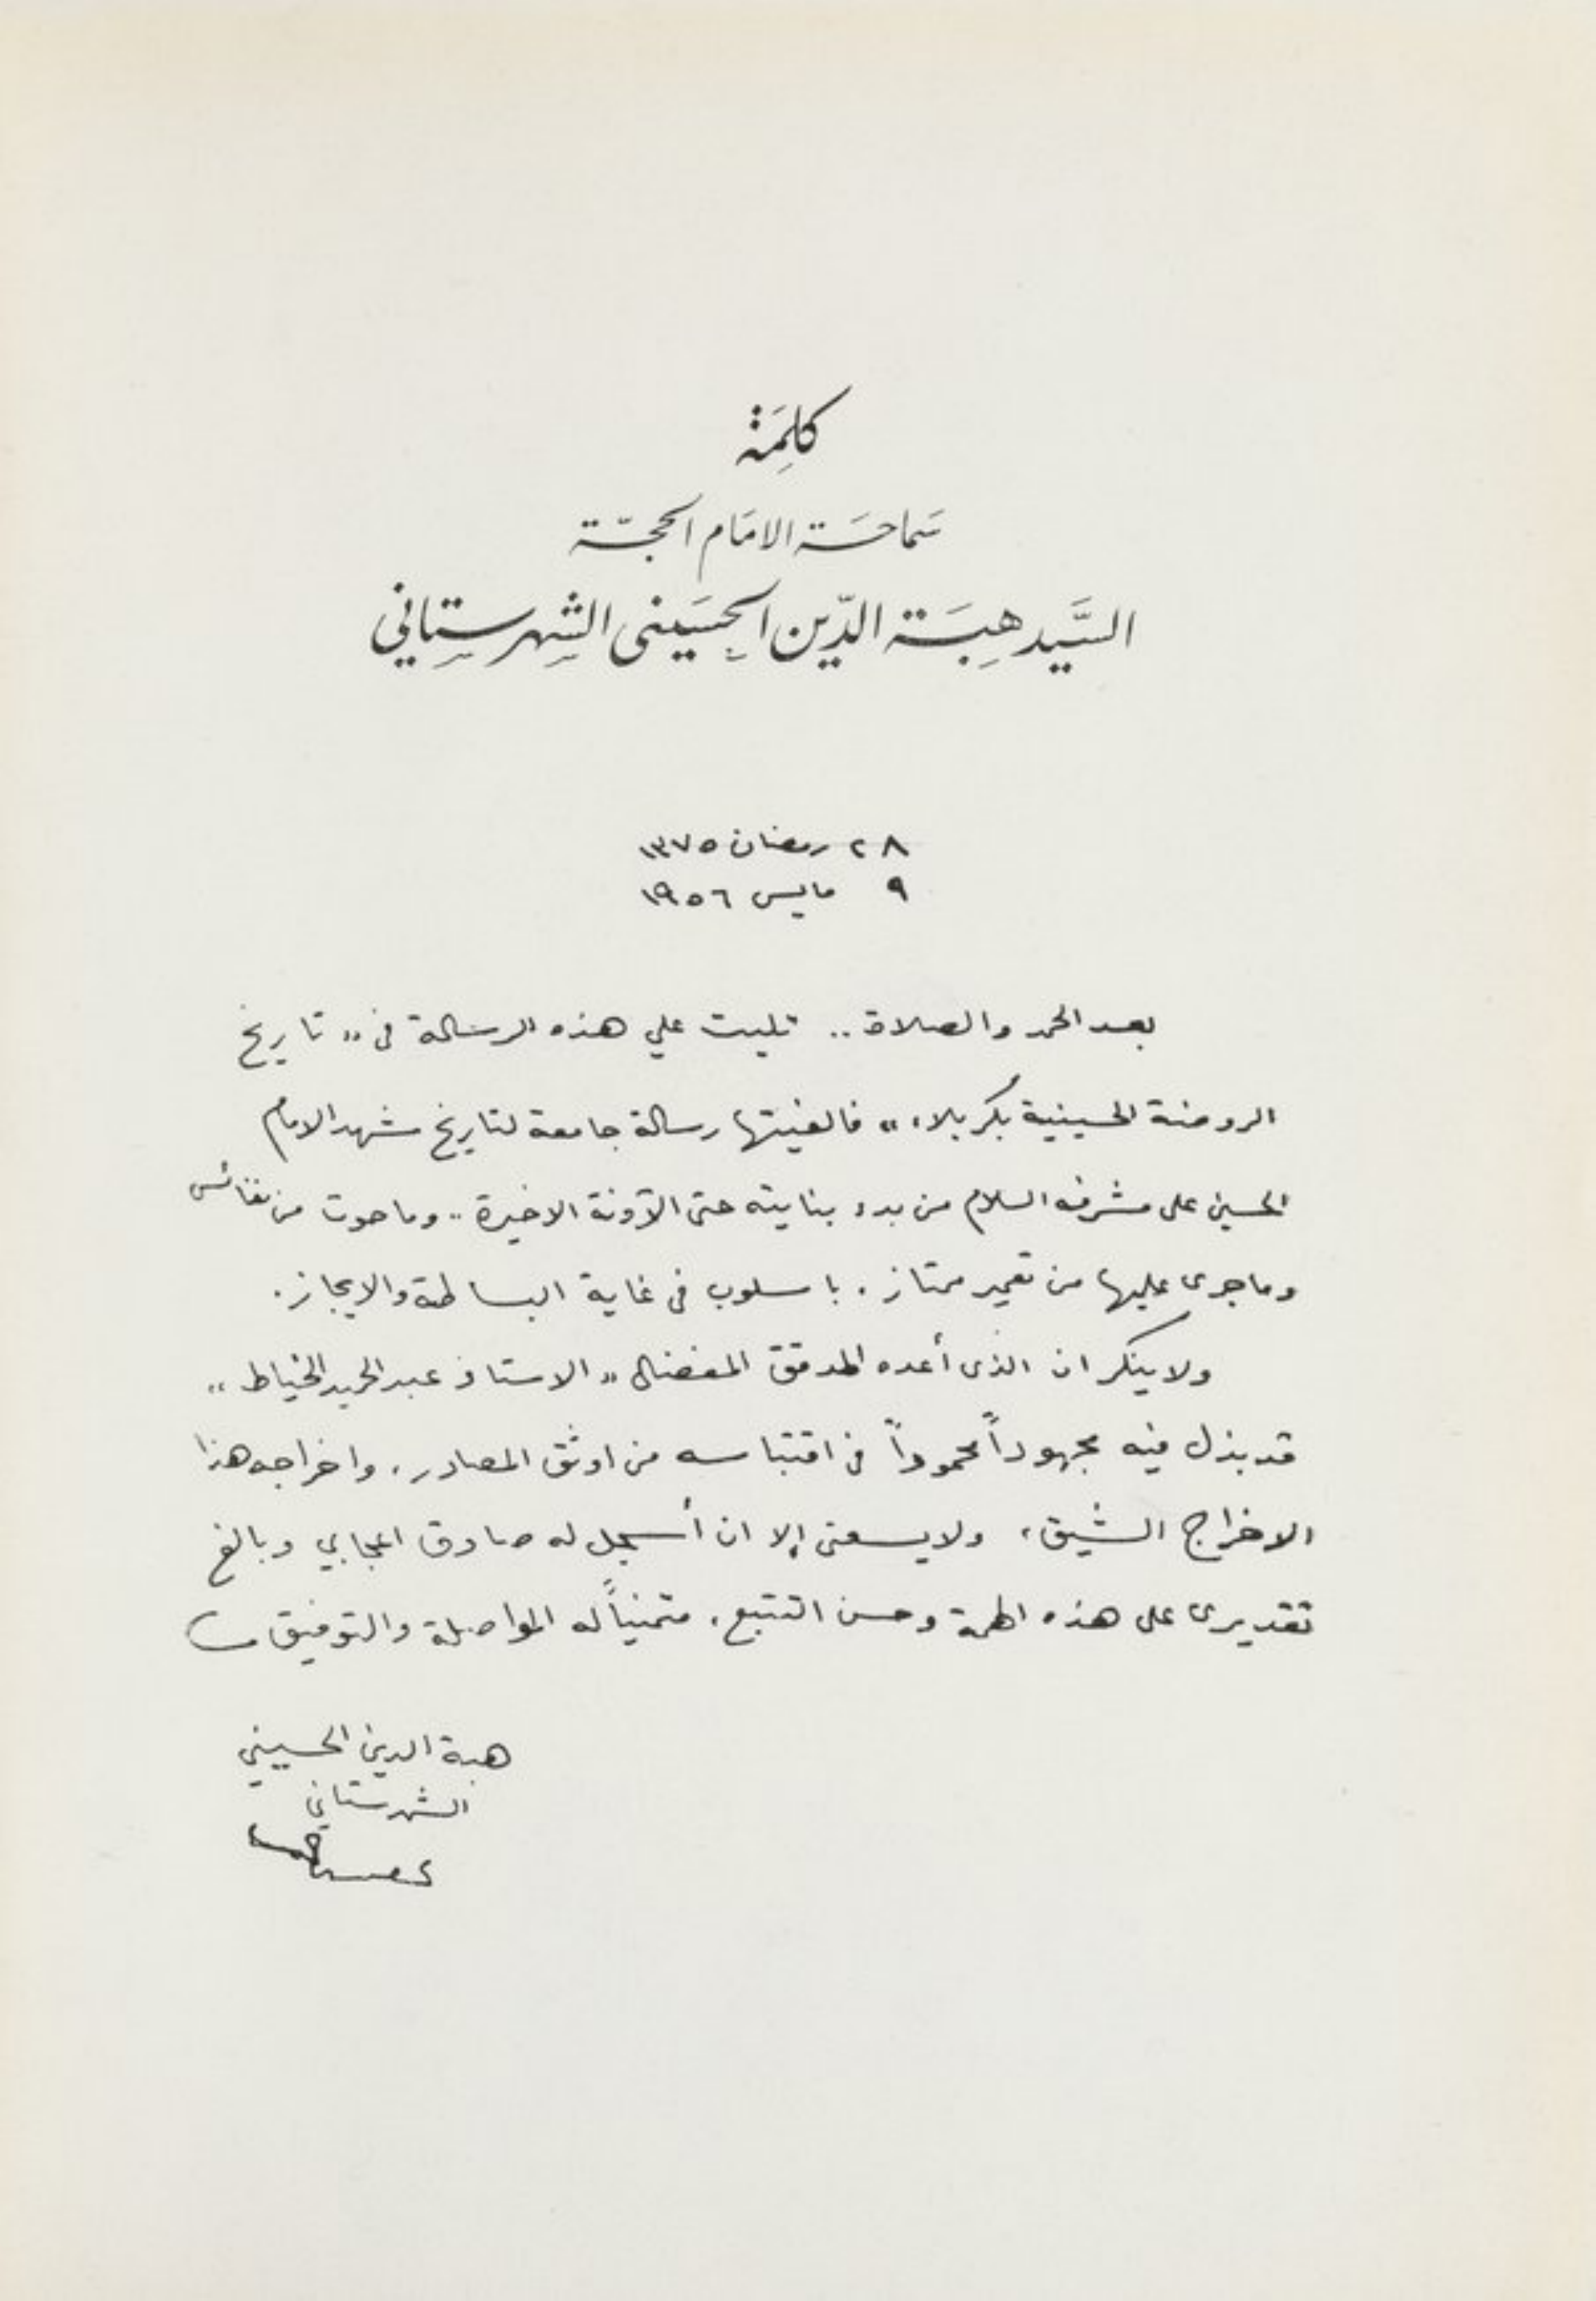 كَلِمَة
سَمَاحَة الامَام الحجّة
السَّيد هِبَة الدّين الحِسَيني الشِهرستِاني
٢٨ رمضان ١٣٧٥
٩ مايس ١٩٥٦
بعد الحمد والصلاة .. تليت علي هذه الرسالة في « تاريخ
الروضة الحسينية بكربلاء » فالفيتها رسالة جامعة لتاريخ مشهد الامام
الحسين على مشرفه السلام من بدء بنايته حتى الآونة الاخيرة .. وما حوت من نفائس
وما جرى عليها من تعمير ممتاز . باسلوب في غاية البساطة والايجاز .
ولا ينكر ان الذى أعده المدقق المفضال « الاستاذ عبد الحميد الخياط »
قد بذل فيه مجهوداً محموداً في اقتباسه من اوثق المصادر . واخراجه هذا
الاخراج الشيق ، ولا يسعنى إلا ان أسجل له صادق اعجابي وبالغ
تقديرى على هذه الهمة وحسن التتبع . متمنياً له المواصلة والتوفيق
هبة الدين الحسيني
الشهرستاني